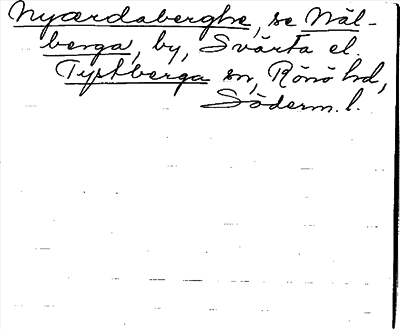 Nyærdaberghe, se Näl-
berga, by, Svärta el.
Tystberga sn, Rönö hd,
Söderm. l.